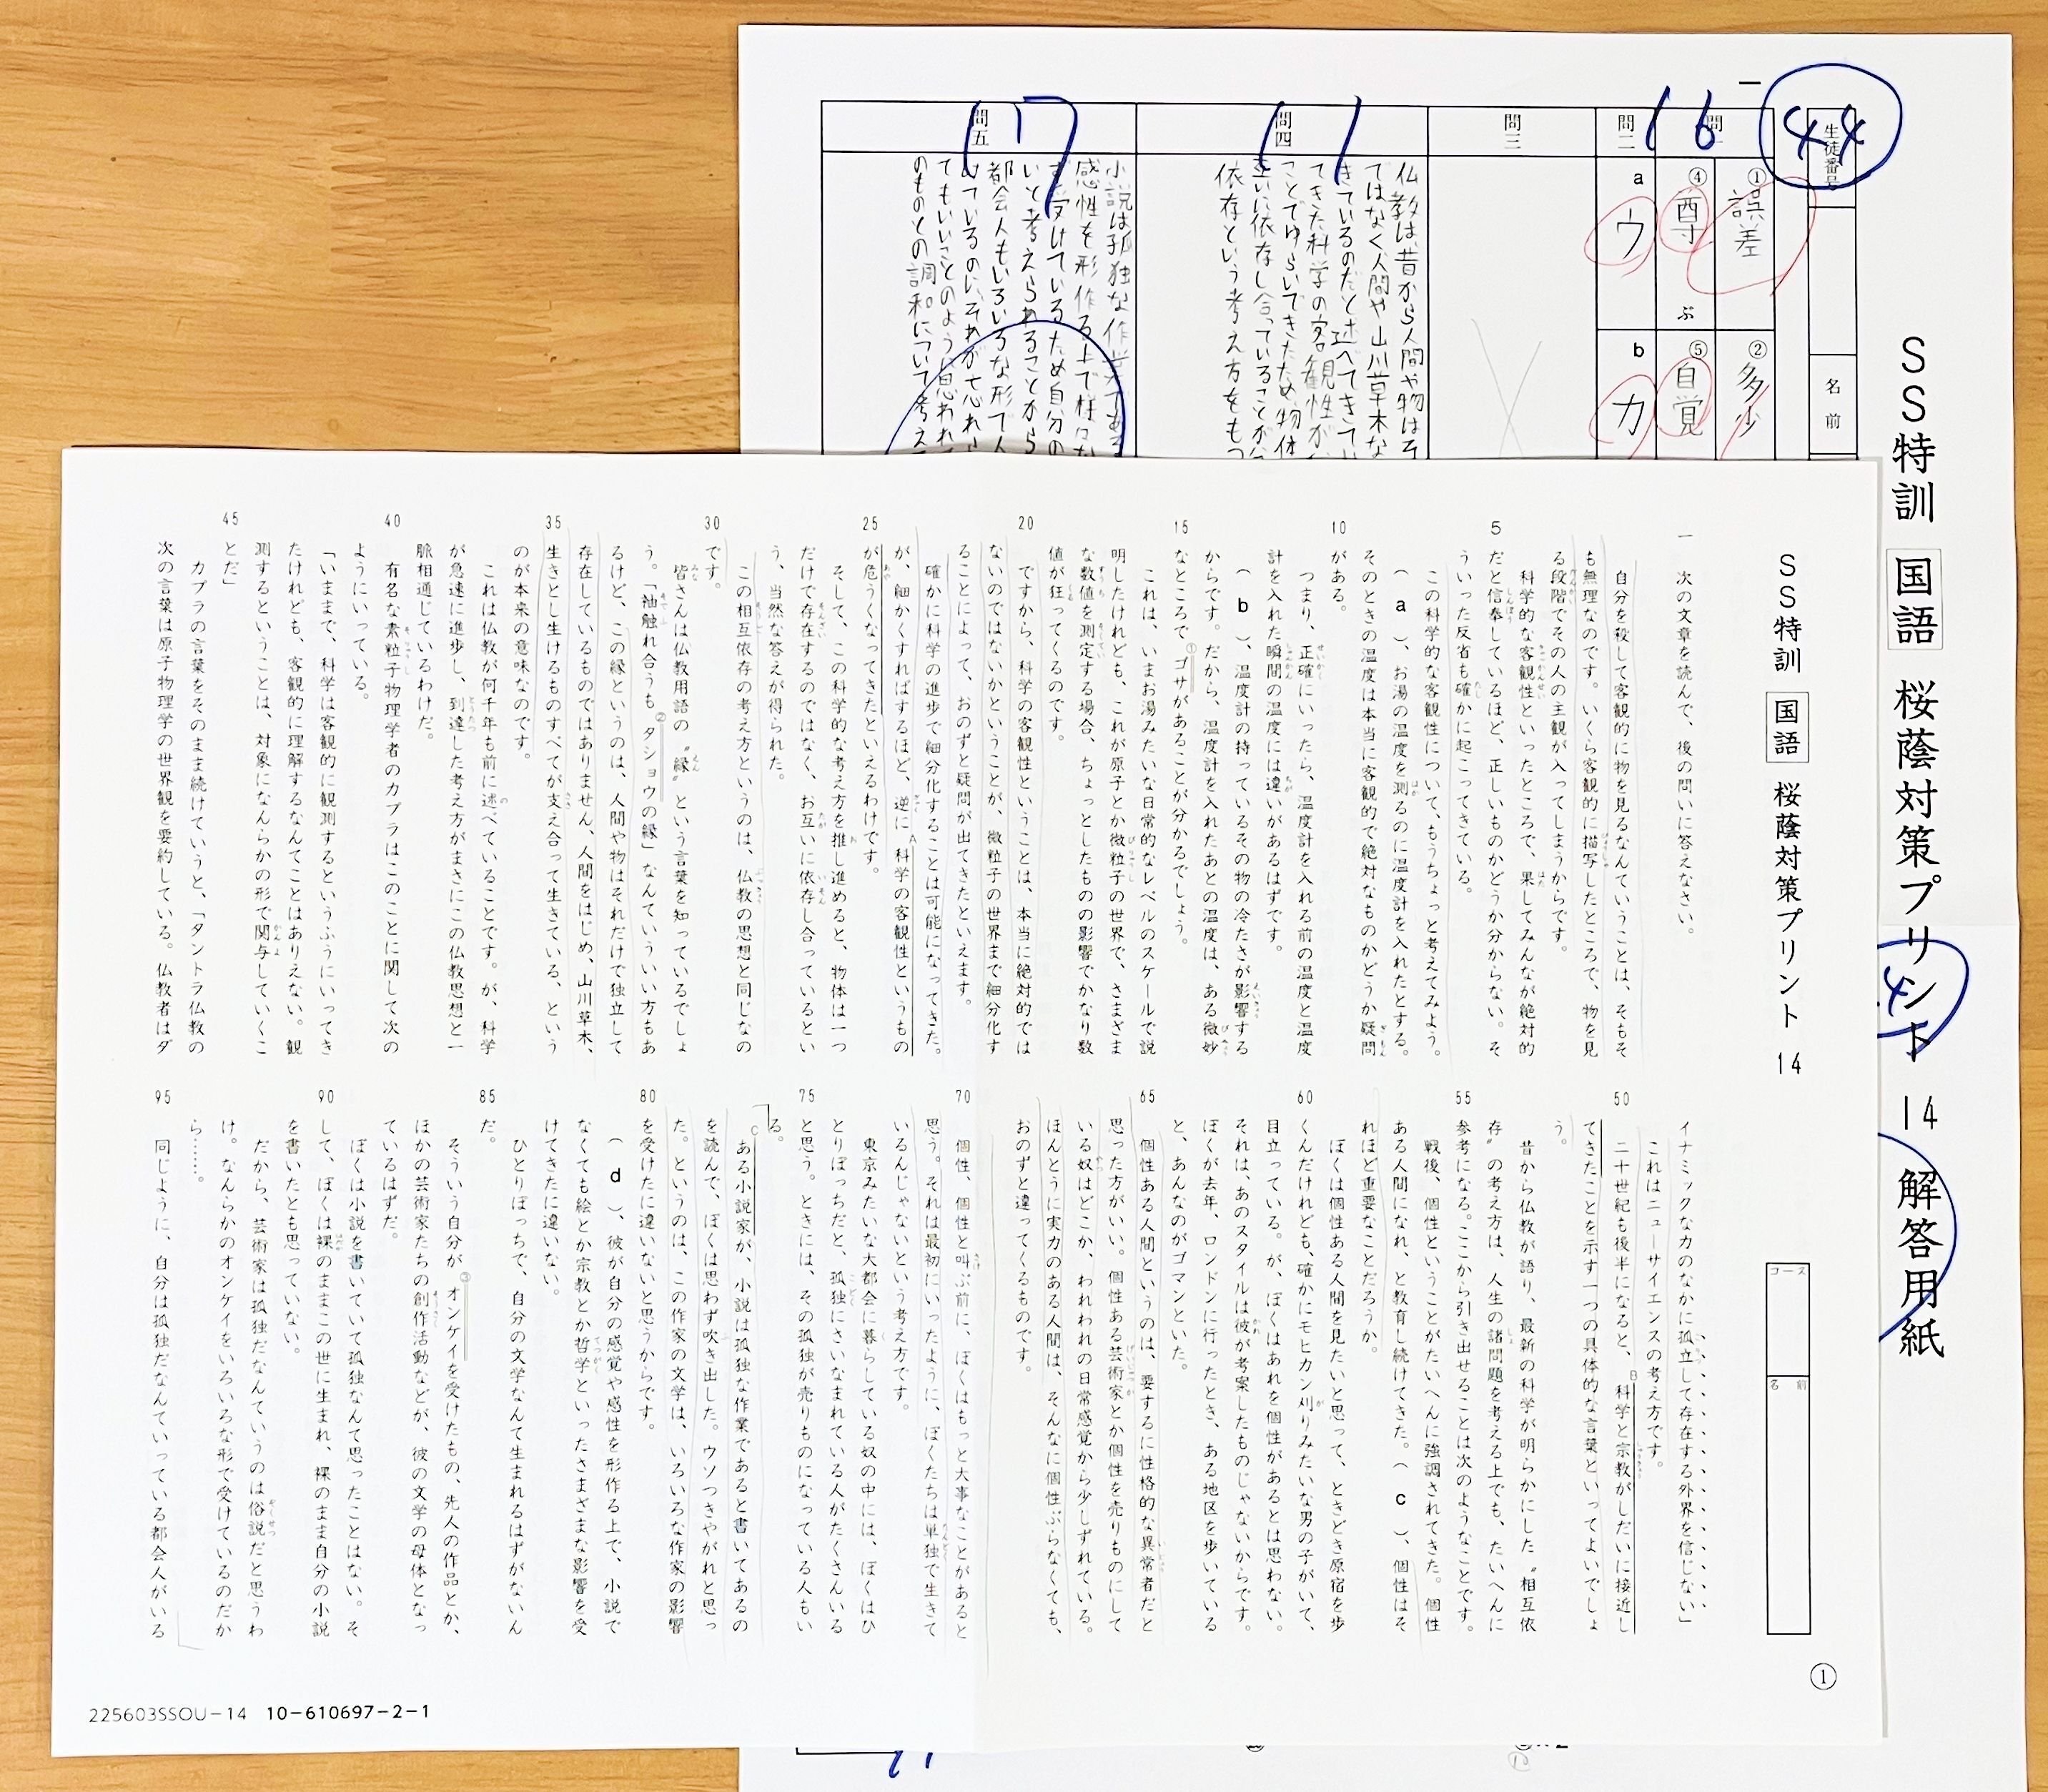 SS特訓 国語 桜蔭対策プリント 14 解答用紙
生徒番号
名前
44
一
16
① 誤差
② 多少
④ 尊ぶ
⑤ 自覚
問二
a ウ
b カ
問三
問四
11
仏教は、昔から人間や物はそ
ではなく人間や山川草木な
きているのだと述べてきてい
てきた科学の客観性が
ことでゆらいできたため、物体
互いに依存し合っていることが
依存という考え方をもつ
問五
17
小説は孤独な作業である
感性を形作る上で様々な
を受けているため自分の
いと考えられることから
都会人もいろいろな形で人
けているのにそれが忘れら
てもいいことのように思われ
のものとの調和について考え
SS特訓 国語 桜蔭対策プリント 14
コース
名前
①
一 次の文章を読んで、後の問いに答えなさい。
自分を殺して客観的に物を見るなんていうことは、そもそ
も無理なのです。いくら客観的に描写したところで、物を見
る段階でその人の主観が入ってしまうからです。
科学的な客観性といったところで、果してみんなが絶対的
5 だと信奉しているほど、正しいものかどうか分からない。そ
ういった反省も確かに起こってきている。
この科学的な客観性について、もうちょっと考えてみよう。
( a )、お湯の温度を測るのに温度計を入れたとする。
そのときの温度は本当に客観的で絶対なものかどうか疑問
10 がある。
つまり、正確にいったら、温度計を入れる前の温度と温度
計を入れた瞬間の温度には違いがあるはずです。
( b )、温度計の持っているその物の冷たさが影響する
からです。だから、温度計を入れたあとの温度は、ある微妙
15 なところで①ゴサがあることが分かるでしょう。
これは、いまお湯みたいな日常的なレベルのスケールで説
明したけれども、これが原子とか微粒子の世界で、さまざま
な数値を測定する場合、ちょっとしたものの影響でかなり数
値が狂ってくるのです。
20 ですから、科学の客観性ということは、本当に絶対的では
ないのではないかということが、微粒子の世界まで細分化す
ることによって、おのずと疑問が出てきたといえます。
確かに科学の進歩で細分化することは可能になってきた。
が、細かくすればするほど、逆にA科学の客観性というもの
25 が危うくなってきたといえるわけです。
そして、この科学的な考え方を推し進めると、物体は一つ
だけで存在するのではなく、お互いに依存し合っているとい
う、当然な答えが得られた。
この相互依存の考え方というのは、仏教の思想と同じなの
30 です。
皆さんは仏教用語の〝縁〟という言葉を知っているでしょ
う。「袖触れ合うも②タショウの縁」なんていういい方もあ
るけど、この縁というのは、人間や物はそれだけで独立して
存在しているものではありません、人間をはじめ、山川草木、
35 生きとし生けるものすべてが支え合って生きている、という
のが本来の意味なのです。
これは仏教が何千年も前に述べていることです。が、科学
が急速に進歩し、到達した考え方がまさにこの仏教思想と一
脈相通じているわけだ。
40 有名な素粒子物理学者のカプラはこのことに関して次の
ようにいっている。
「いままで、科学は客観的に観測するというふうにいってき
たけれども、客観的に理解するなんてことはありえない。観
測するということは、対象になんらかの形で関与していくこ
45 とだ」
カプラの言葉をそのまま続けていうと、「タントラ仏教の
次の言葉は原子物理学の世界観を要約している。仏教者はダ
イナミックな力のなかに孤立して存在する外界を信じない」
これはニューサイエンスの考え方です。
50 二十世紀も後半になると、B科学と宗教がしだいに接近し
てきたことを示す一つの具体的な言葉といってよいでしょ
う。
昔から仏教が語り、最新の科学が明らかにした〝相互依
存〟の考え方は、人生の諸問題を考える上でも、たいへんに
55 参考になる。ここから引き出せることは次のようなことです。
戦後、個性ということがたいへんに強調されてきた。個性
ある人間になれ、と教育し続けてきた。( c )、個性はそ
れほど重要なことだろうか。
ぼくは個性ある人間を見たいと思って、ときどき原宿を歩
60 くんだけれども、確かにモヒカン刈りみたいな男の子がいて、
目立っている。が、ぼくはあれを個性があるとは思わない。
それは、あのスタイルは彼が考案したものじゃないからです。
ぼくが去年、ロンドンに行ったとき、ある地区を歩いている
と、あんなのがゴマンといた。
65 個性ある人間というのは、要するに性格的な異常者だと
思った方がいい。個性ある芸術家とか個性を売りものにして
いる奴はどこか、われわれの日常感覚から少しずれている。
ほんとうに実力のある人間は、そんなに個性ぶらなくても、
おのずと違ってくるものです。
70 個性、個性と叫ぶ前に、ぼくはもっと大事なことがあると
思う。それは最初にいったように、ぼくたちは単独で生きて
いるんじゃないという考え方です。
東京みたいな大都会に暮らしている奴の中には、ぼくはひ
とりぼっちだと、孤独にさいなまれている人がたくさんいる
75 と思う。ときには、その孤独が売りものになっている人もい
る。
Cある小説家が、小説は孤独な作業であると書いてあるの
を読んで、ぼくは思わず吹き出した。ウソつきやがれと思っ
た。というのは、この作家の文学は、いろいろな作家の影響
80 を受けたに違いないと思うからです。
( d )、彼が自分の感覚や感性を形作る上で、小説で
なくても絵とか宗教とか哲学といったさまざまな影響を受
けてきたに違いない。
ひとりぼっちで、自分の文学なんて生まれるはずがないん
85 だ。
そういう自分が③オンケイを受けたもの、先人の作品とか、
ほかの芸術家たちの創作活動などが、彼の文学の母体となっ
ているはずだ。
ぼくは小説を書いていて孤独なんて思ったことはない。そ
90 して、ぼくは裸のままこの世に生まれ、裸のまま自分の小説
を書いたとも思っていない。
だから、芸術家は孤独だなんていうのは俗説だと思うわ
け。なんらかのオンケイをいろいろな形で受けているのだか
ら……。
95 同じように、自分は孤独だなんていっている都会人がいる
225603SSOU-14 10-610697-2-1